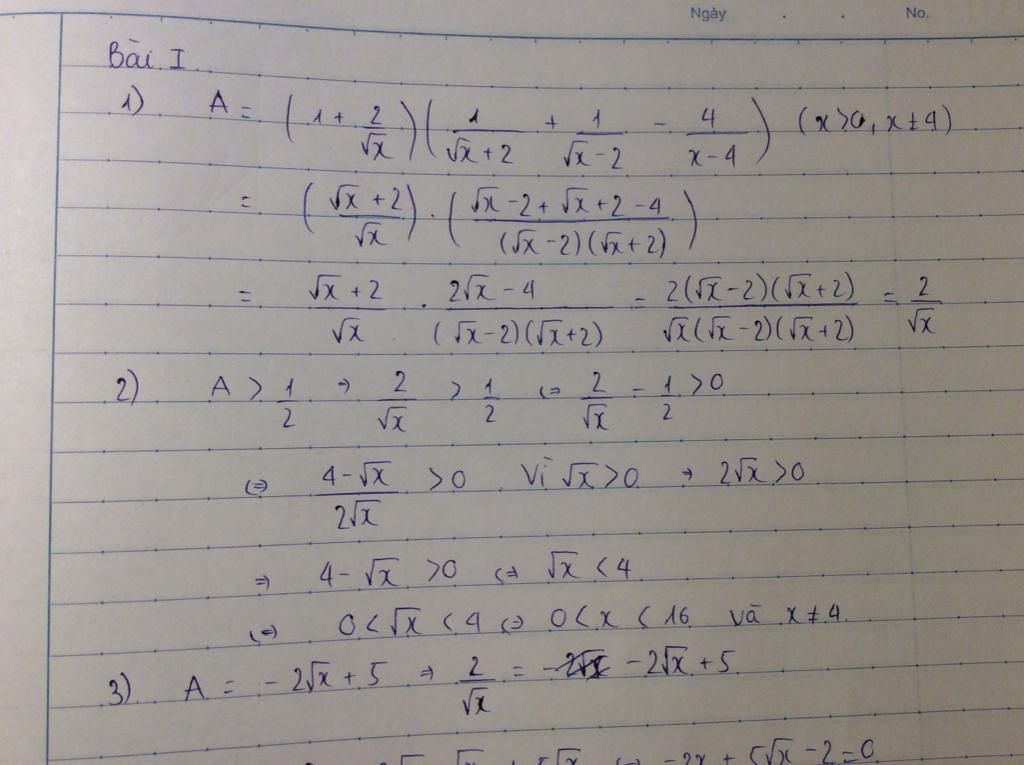 Ngày . . No.
Bài I
1) A = (1 + 2/√x)(1/(√x + 2) + 1/(√x - 2) - 4/(x - 4)) (x > 0, x ≠ 4)
= ((√x + 2)/√x) . ((√x - 2 + √x + 2 - 4)/((√x - 2)(√x + 2)))
= (√x + 2)/√x . (2√x - 4)/((√x - 2)(√x + 2)) = (2(√x - 2)(√x + 2))/(√x(√x - 2)(√x + 2)) = 2/√x
2) A > 1/2 ⇒ 2/√x > 1/2 ⇔ 2/√x - 1/2 > 0
⇔ (4 - √x)/(2√x) > 0 Vì √x > 0 ⇒ 2√x > 0
⇒ 4 - √x > 0 ⇔ √x < 4
⇔ 0 < √x < 4 ⇔ 0 < x < 16 và x ≠ 4
3) A = - 2√x + 5 ⇒ 2/√x = - 2√x + 5
⇔ -2x + 5√x - 2 = 0